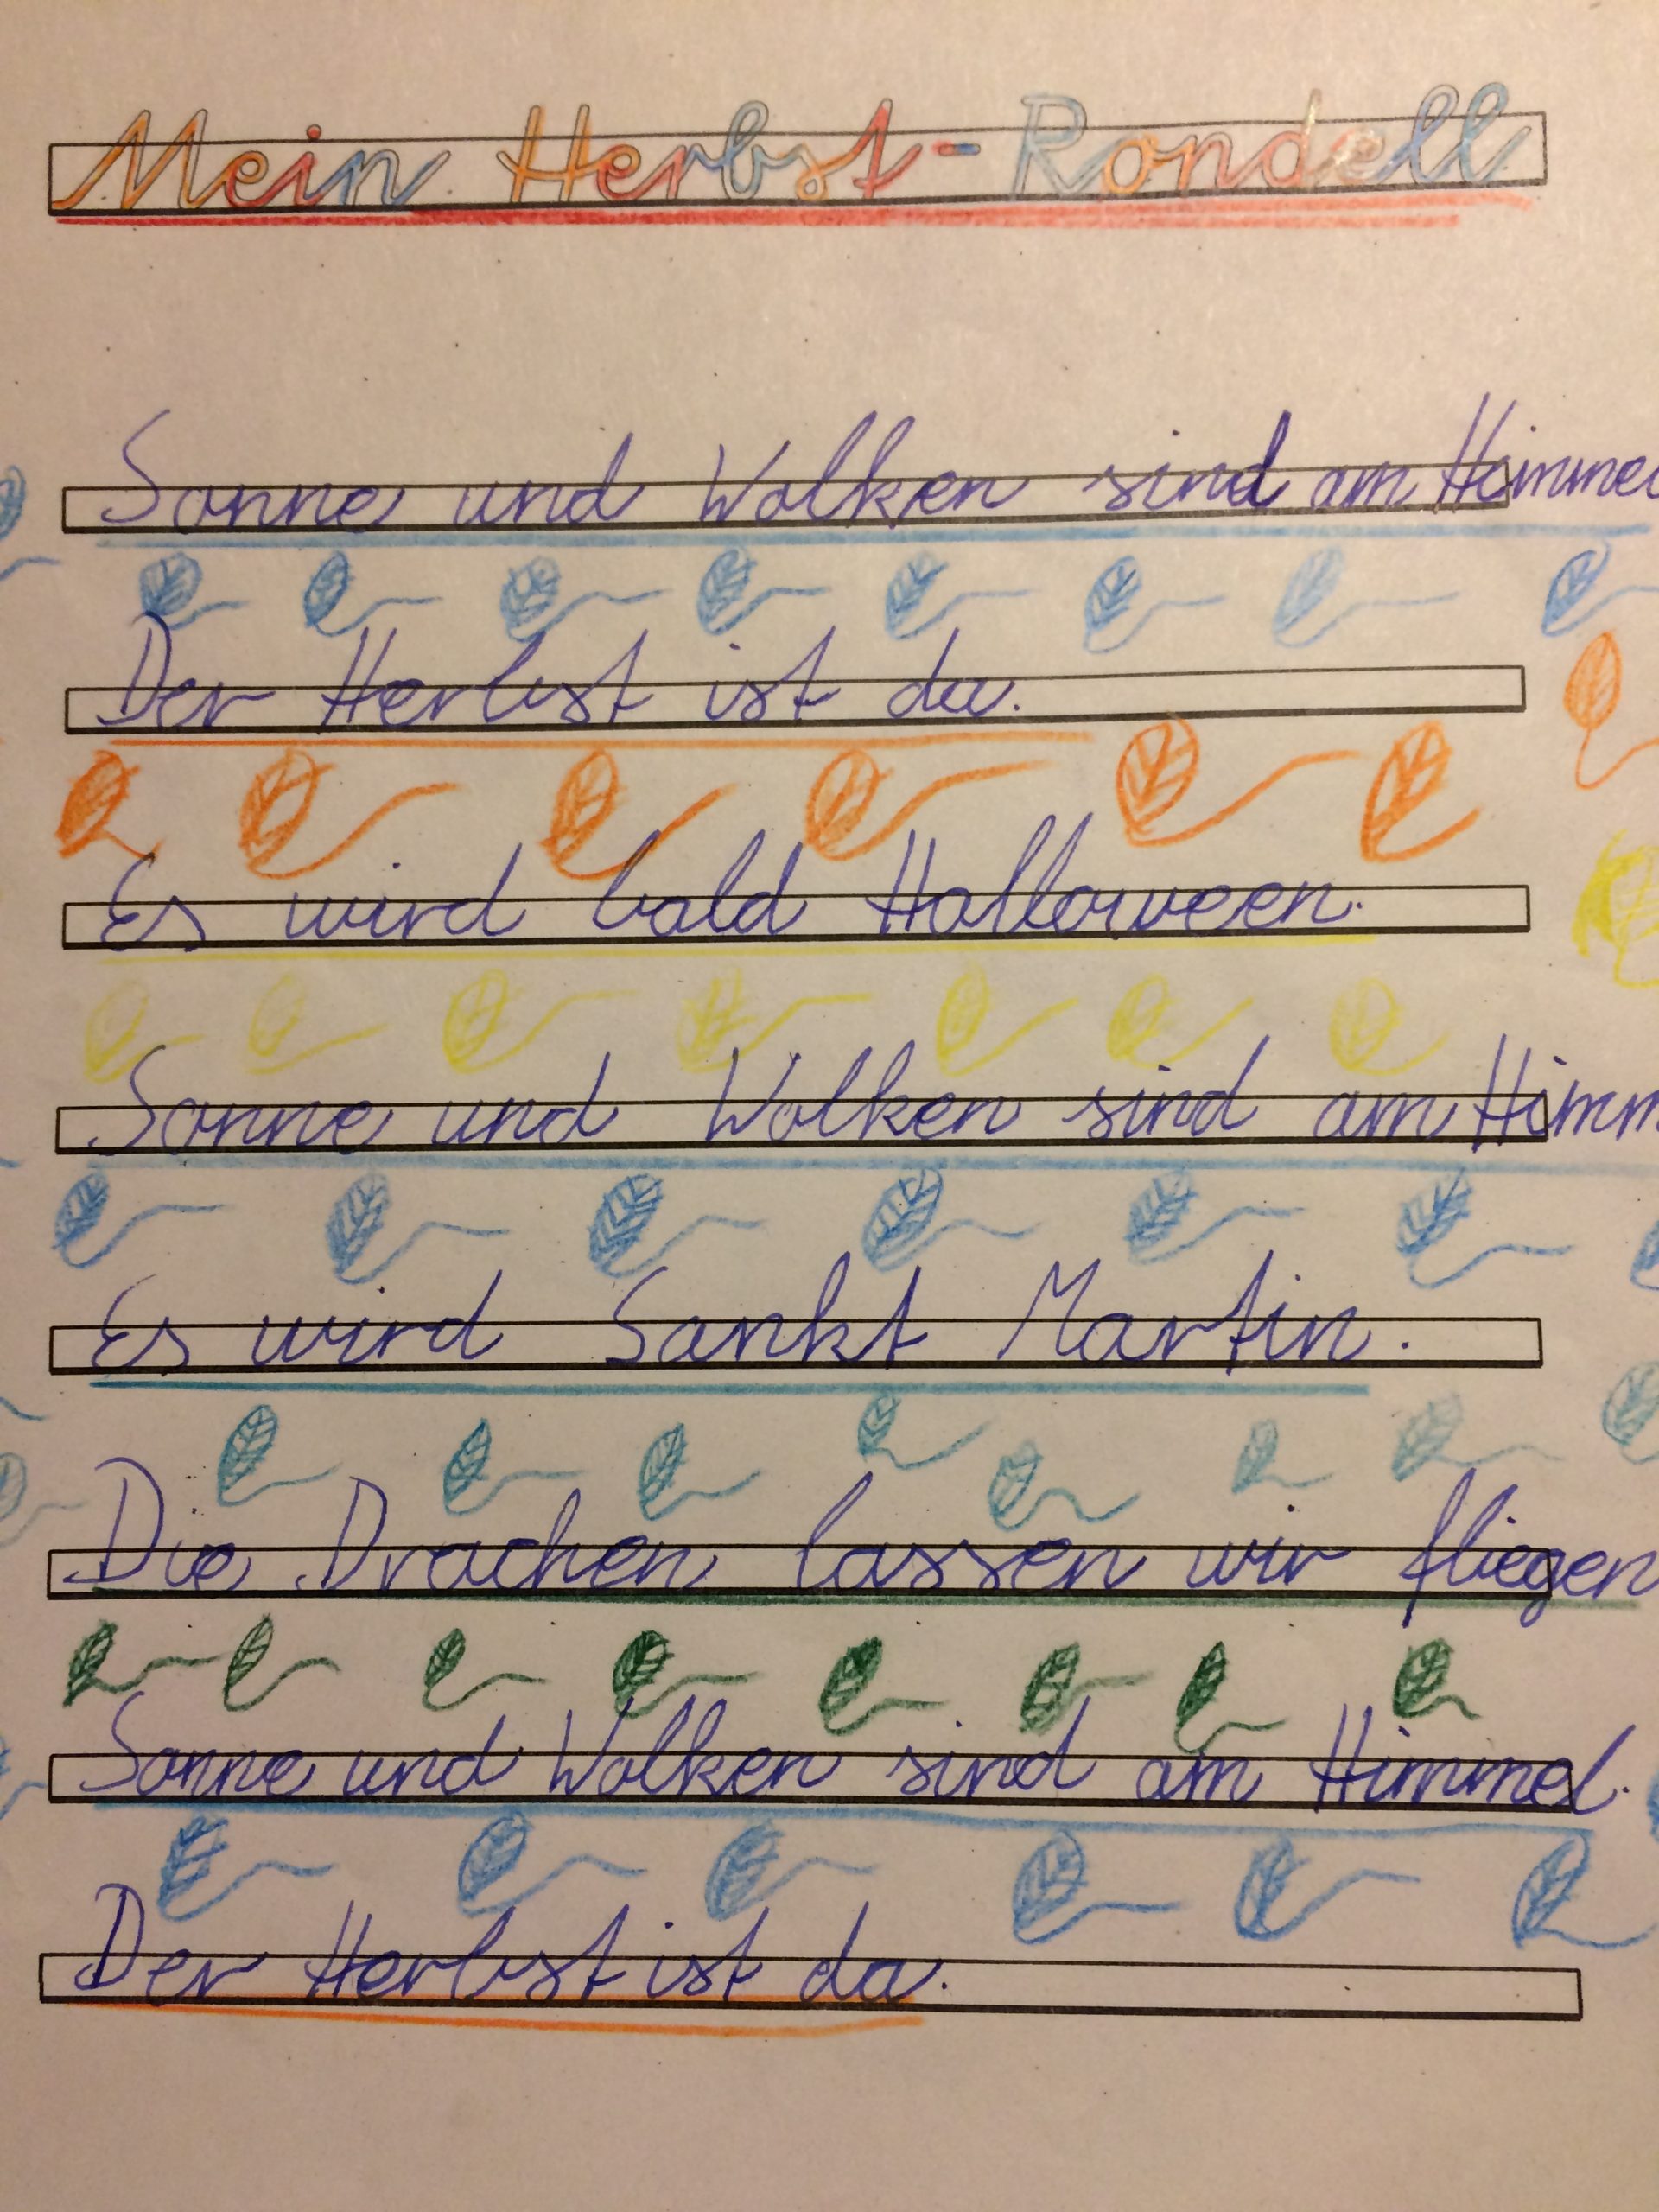 Mein Herbst-Rondell
Sonne und Wolken sind am Himmel
Der Herbst ist da.
Es wird bald Halloween.
Sonne und Wolken sind am Himm
Es wird Sankt Martin.
Die Drachen lassen wir fliegen
Sonne und Wolken sind am Himmel.
Der Herbst ist da.